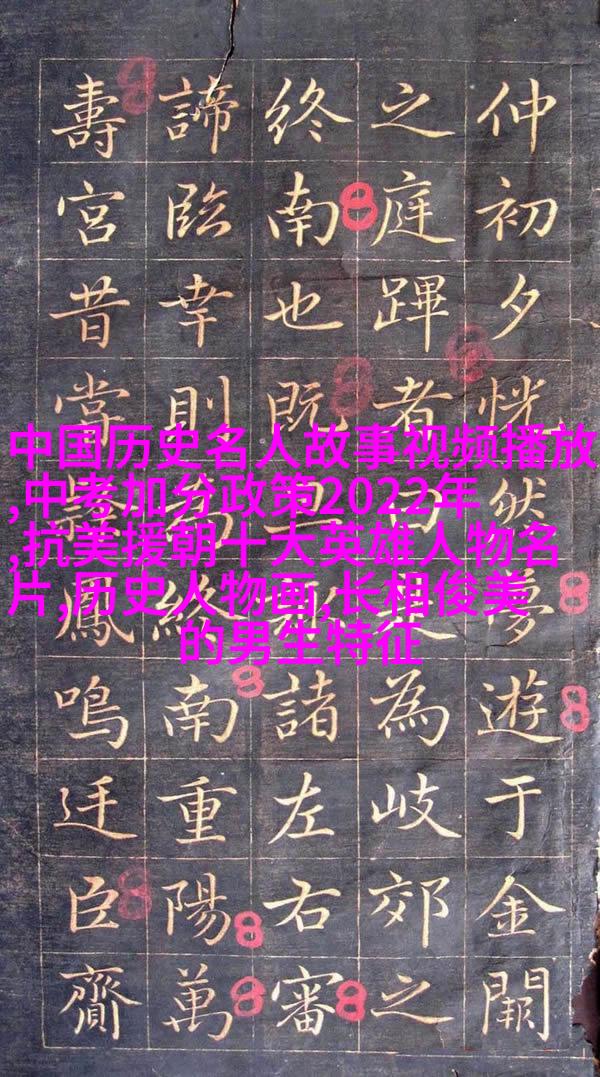 中国历史名人故事视频播放
,中考加分政策2022年
,抗美援朝十大英雄人物名
片,历史人物画,长相俊美
的男生特征
仲初夕恍然夢遊于金闕
之庭蹕者為岐郊之
終南也既旦諸左右審
諦臨幸則終南重陽萬
壽宮昔嘗鳳鳴廷臣齎
8
8
8
8
8
8
8
8
8
8
8